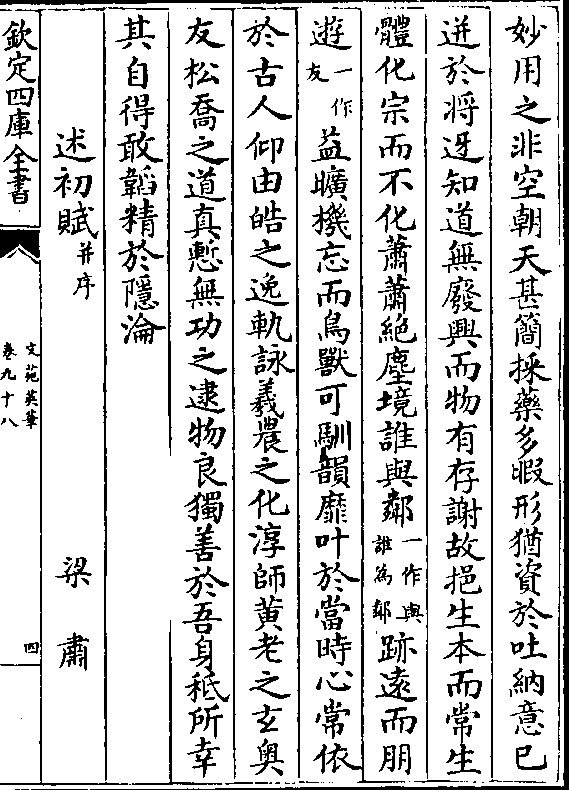 妙用之非空朝天甚簡採藥多暇形猶資於吐納意已
迸於将迓知道無廢興而物有存謝故挹生本而常生
體化宗而不化蕭蕭絶塵境誰與鄰一作與誰為鄰跡遠而朋
遊一作友益曠機忘而鳥獸可馴韻靡叶於當時心常依
於古人仰由皓之逸軌詠羲農之化淳師黄老之玄奥
友松喬之道真慙無功之逮物良獨善於吾身秪所幸
其自得敢韜精於隱淪
述初賦并序 梁肅
欽定四庫全書
文苑英華
卷九十八
四